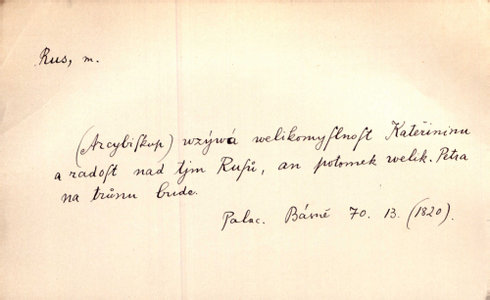 Rus, m.
(Arcybiſkup) wzýwá welikomyſlnoſt Kateřininu
a radoſt nad tjm Ruſů, an potomek welik. Petra
na trůnu bude.
Palac. Básně 70. 13. (1820).